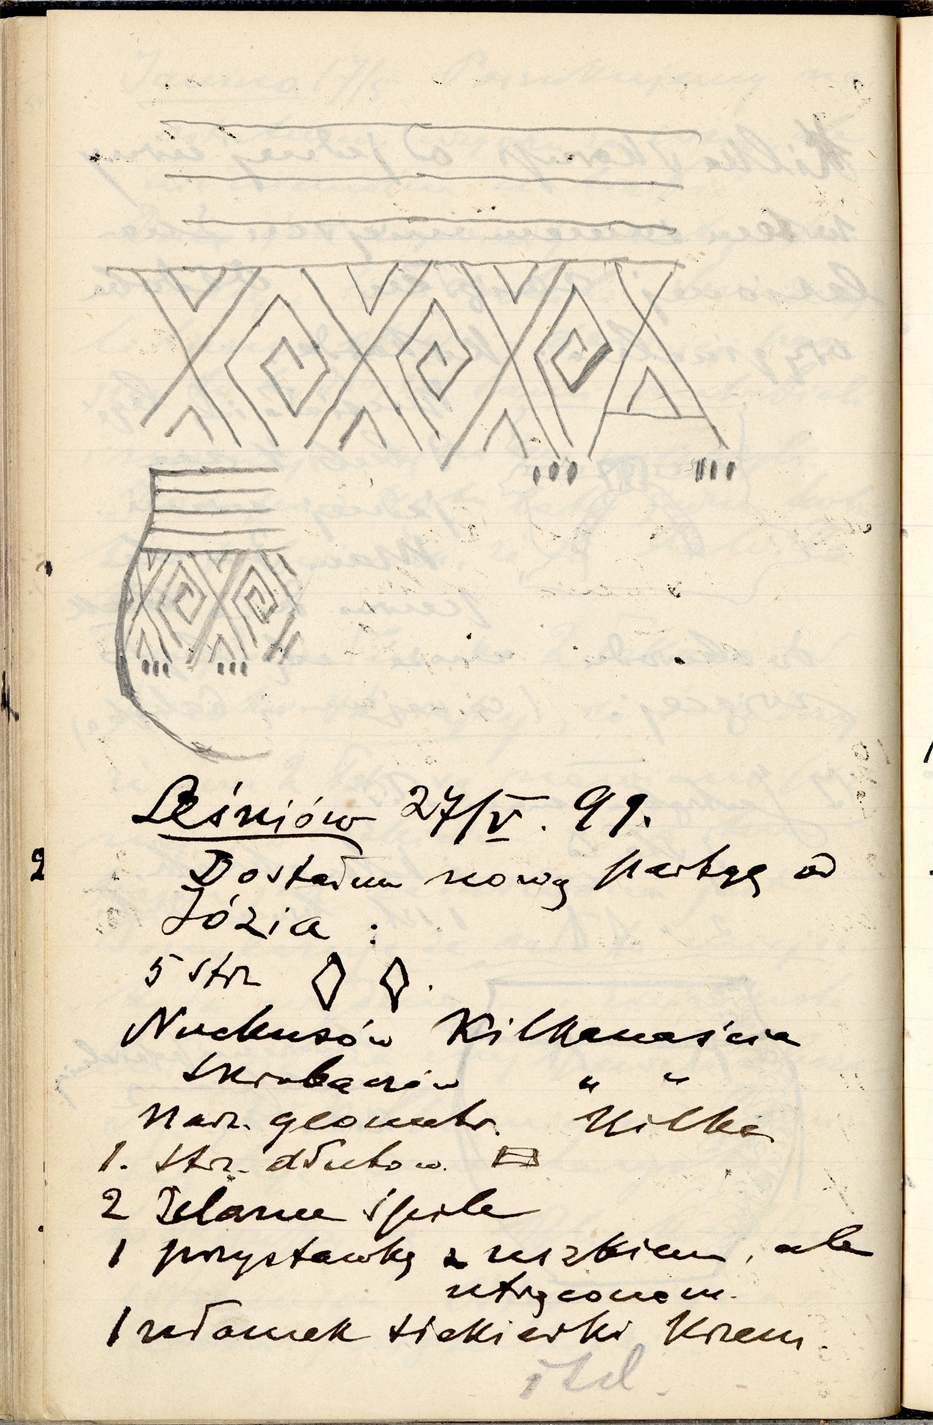 Leśniów 27/V. 99.
2
Dostałem nową partyę od
Józia :
5 strz ◊ ◊.
Nucleusów Kilkanaście
Skrobaczów " "
narz. geometr. Kilka
1. strz. dłutow. ▭
2 Żelazne śpile
1 przystawkę z uszkiem, ale
utrąconem.
1 ułamek siekierki Krzem.
itd.